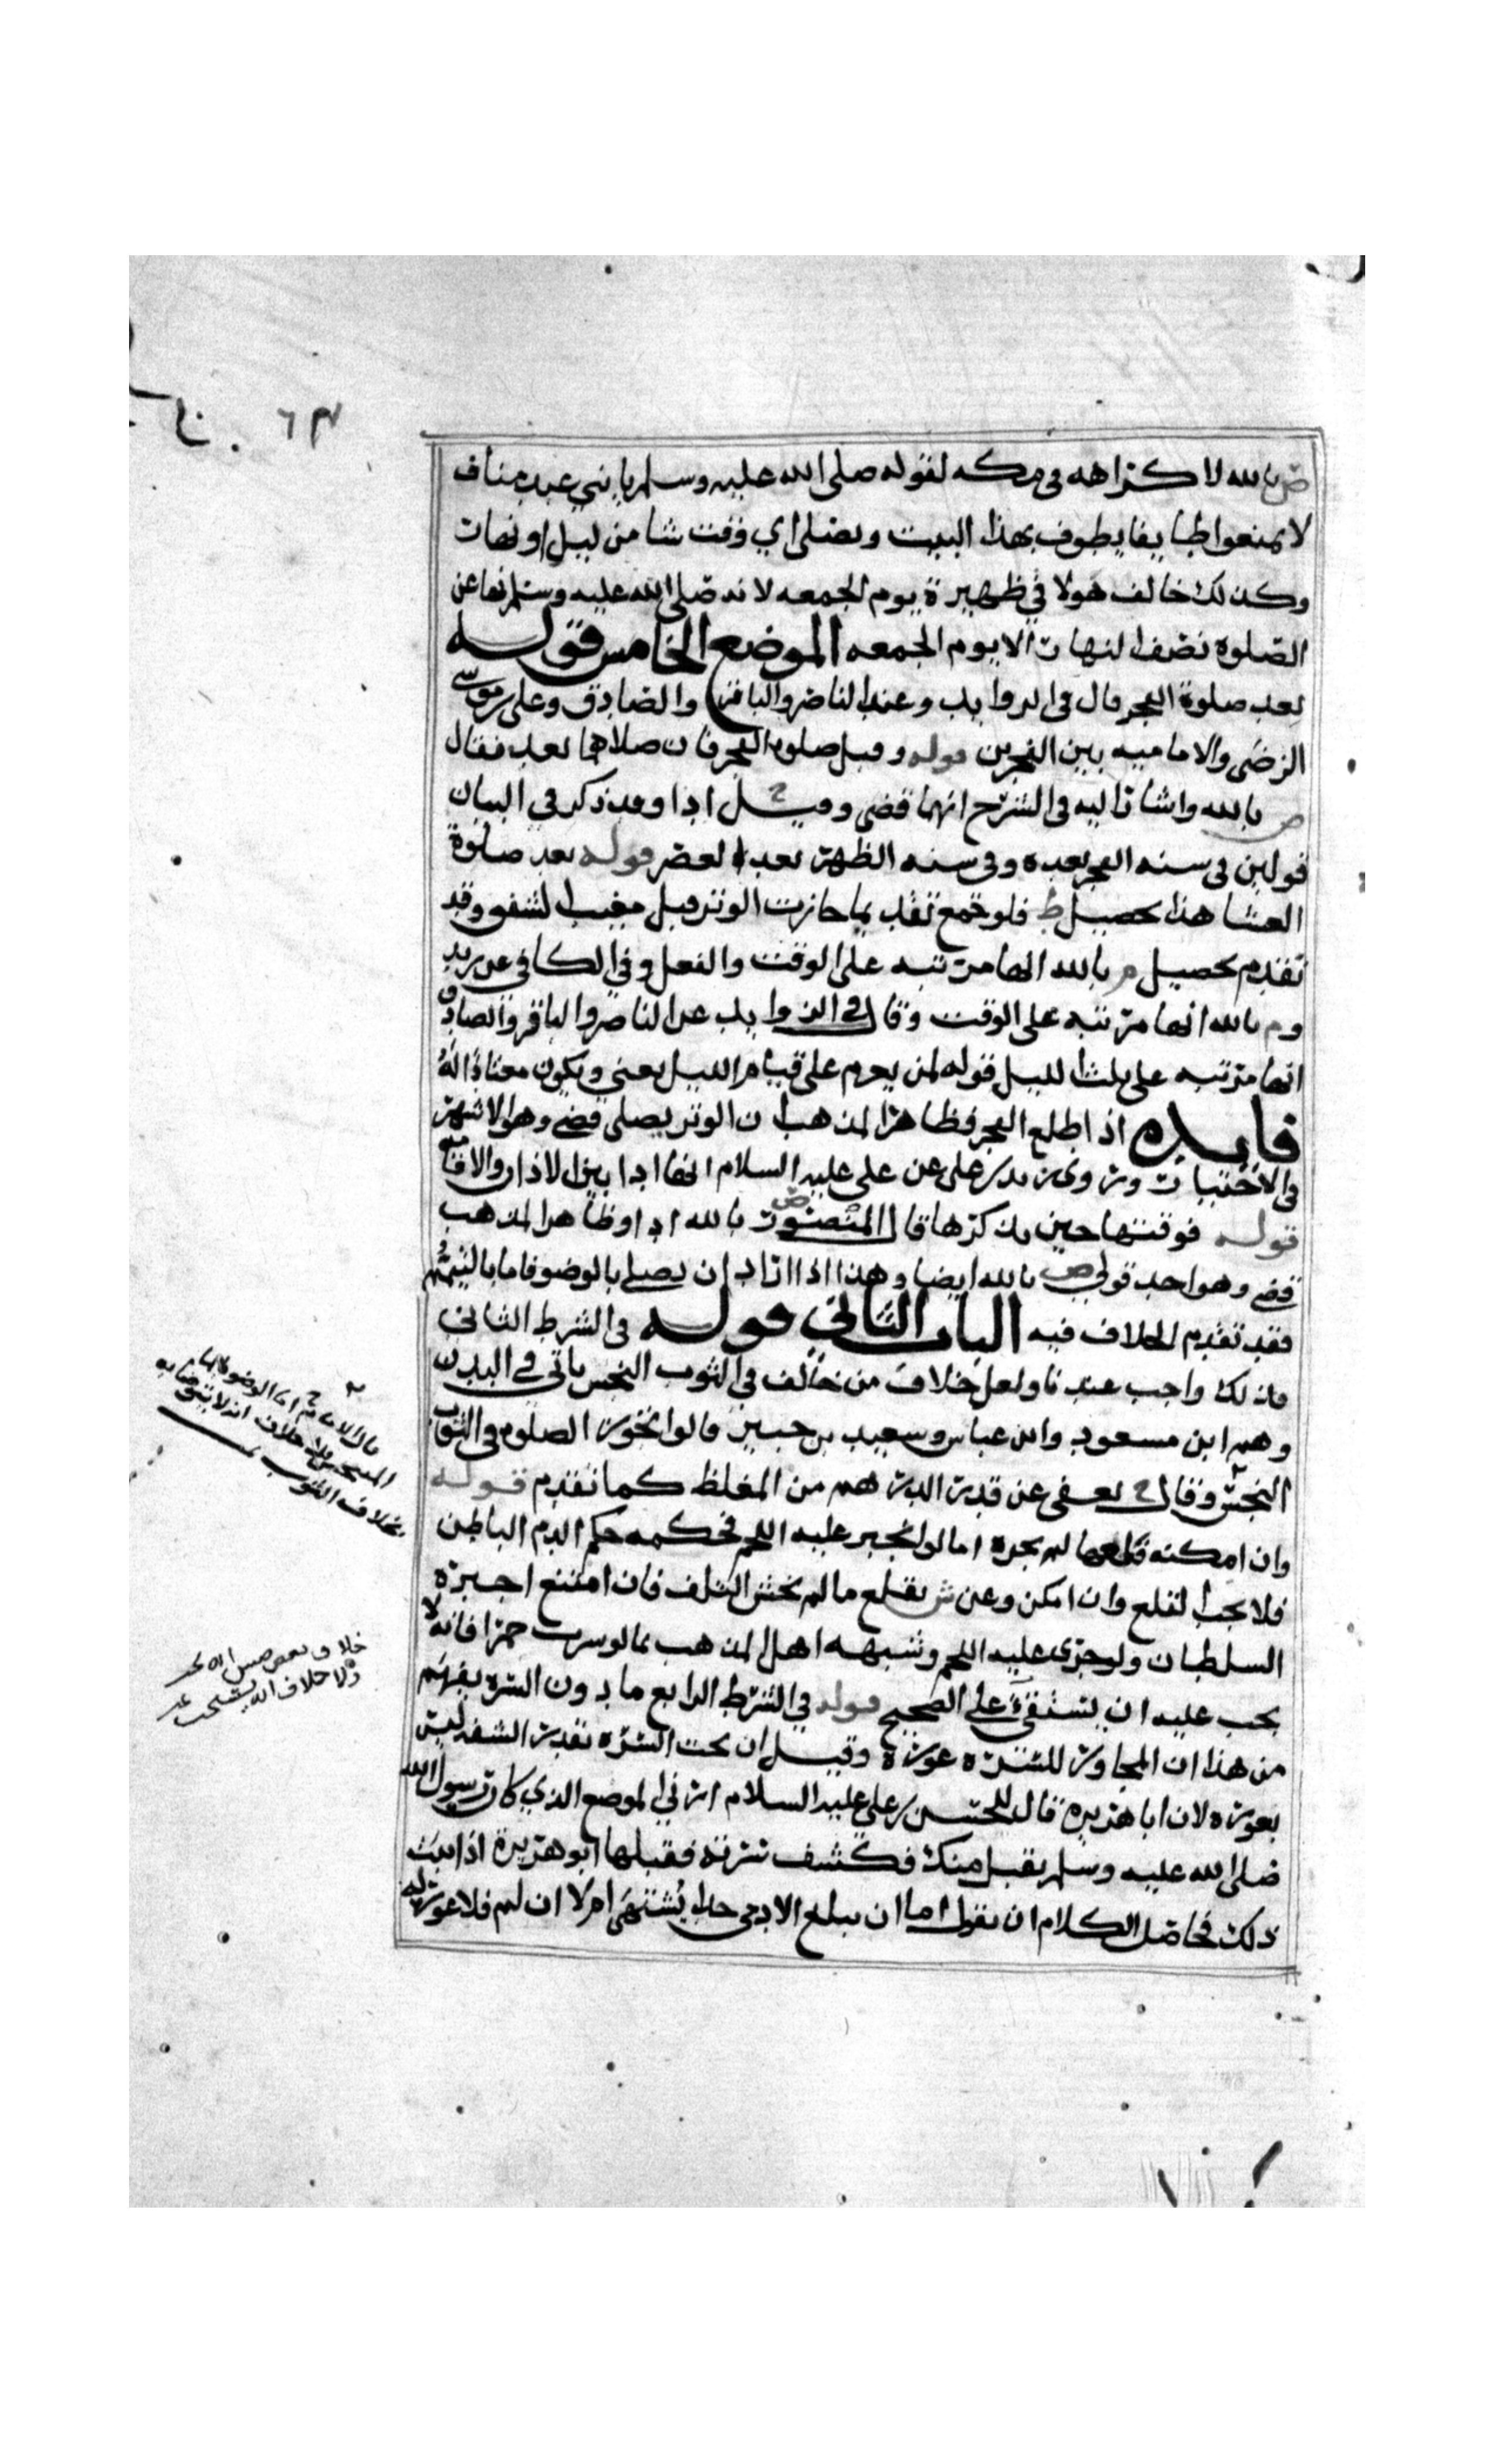 ٦٣
ص بالله لا كراهه في مكه لقوله صلى الله عليه وسلم يا بني عبد مناف
لا تمنعوا طايفا يطوف بهذا البيت ويصلى اي وقت شا من ليل او نهار
وكذلك خالف هولا في ظهيرة يوم الجمعه لانه صلى الله عليه وسلم نها عن
الصلوة نصف النهار الا يوم الجمعه الموضع الخامس قوله
بعد صلوة الفجر قال في الروايد وعند الناصر والباقر والصادق وعلي بن موسى
الرضى والاماميه بين الفجرين قوله وقبل صلوة الفجر فان صلاهما بعد فقال
ص بالله واشار اليه في الشرح انهما قضى وقيل ادا وقد ذكر في البيان
قولين في سنه الفجر بعده وفي سنه الظهر بعد العصر قوله بعد صلوة
العشا هذا تحصيل ط فلو جمع تقديما جازت الوتر قبل مغيب الشفق وقد
تقدم تحصيل م بالله انها مرتبه على الوقت والفعل وفي الكافي عن زيد
وم بالله انها مرتبه على الوقت وقال في الزوايد عن الناصر والباقر والصادق
انها مرتبه على ثلث الليل قوله لمن يعزم على قيام الليل يعني ويكون معتادا له
فايده اذا طلع الفجر فظاهر المذهب ان الوتر يصلى قضى وهو الاشهر
في الاختيار وروى زيد بن علي عن علي عليه السلام انها ادا بين الاذان والاقامه
قوله فوقتها حين يذكرها قال المنصور بالله ادا وظاهر المذهب
قضى وهو احد قولي ص بالله ايضا وهذا اذا اراد ان يصلي بالوضو فاما بالتيمم
فقد تقدم الخلاف فيه الباب الثاني قوله في الشرط الثاني
فان لك واجب عندنا ولعل خلاف من خالف في الثوب النجس ياتي في البدن
وهم ابن مسعود وابن عباس وسعيد بن جبير قالوا تجوز الصلوه في الثوب
النجس وقال ح يعفى عن قدر الدرهم من المغلظ كما تقدم قوله
وان امكنه قلعها لم يجزه اما لو انجبر عليه اللحم فحكمه حكم الدم الباطن
فلا يجب القلع وان امكن وعن ش يقلع ما لم يخش التلف فان امتنع اجبره
السلطان ولو جرى عليه اللحم وشبهه اهل المذهب بما لو شرب خمرا فانه لا
يجب عليه ان يستقيء على الصحيح قوله في الشرط الرابع ما دون السره يفهم
من هذا ان المجاور للسره عوره وقيل ان تحت السره بقدر الشفه ليس
بعوره لان ابا هريره قال للحسن بن علي عليه السلام ارني الموضع الذي كان رسول الله
صلى الله عليه وسلم يقبل منك فكشف سرته فقبلها ابو هريرة اذا ثبت
ذلك فحاصل الكلام ان نقول اما ان يبلغ الادمي حدا يشتهى ام لا ان لم فلا عوره له
قال الامام ح اما الوضو بالما
المتنجس فلا خلاف انه لا يتوضا به
بخلاف الثوب
ولا خلاف انه يستحب